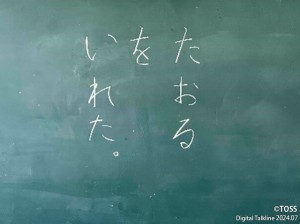 たおる
を
いれた。
©TOSS
Digital Talkline 2024.07